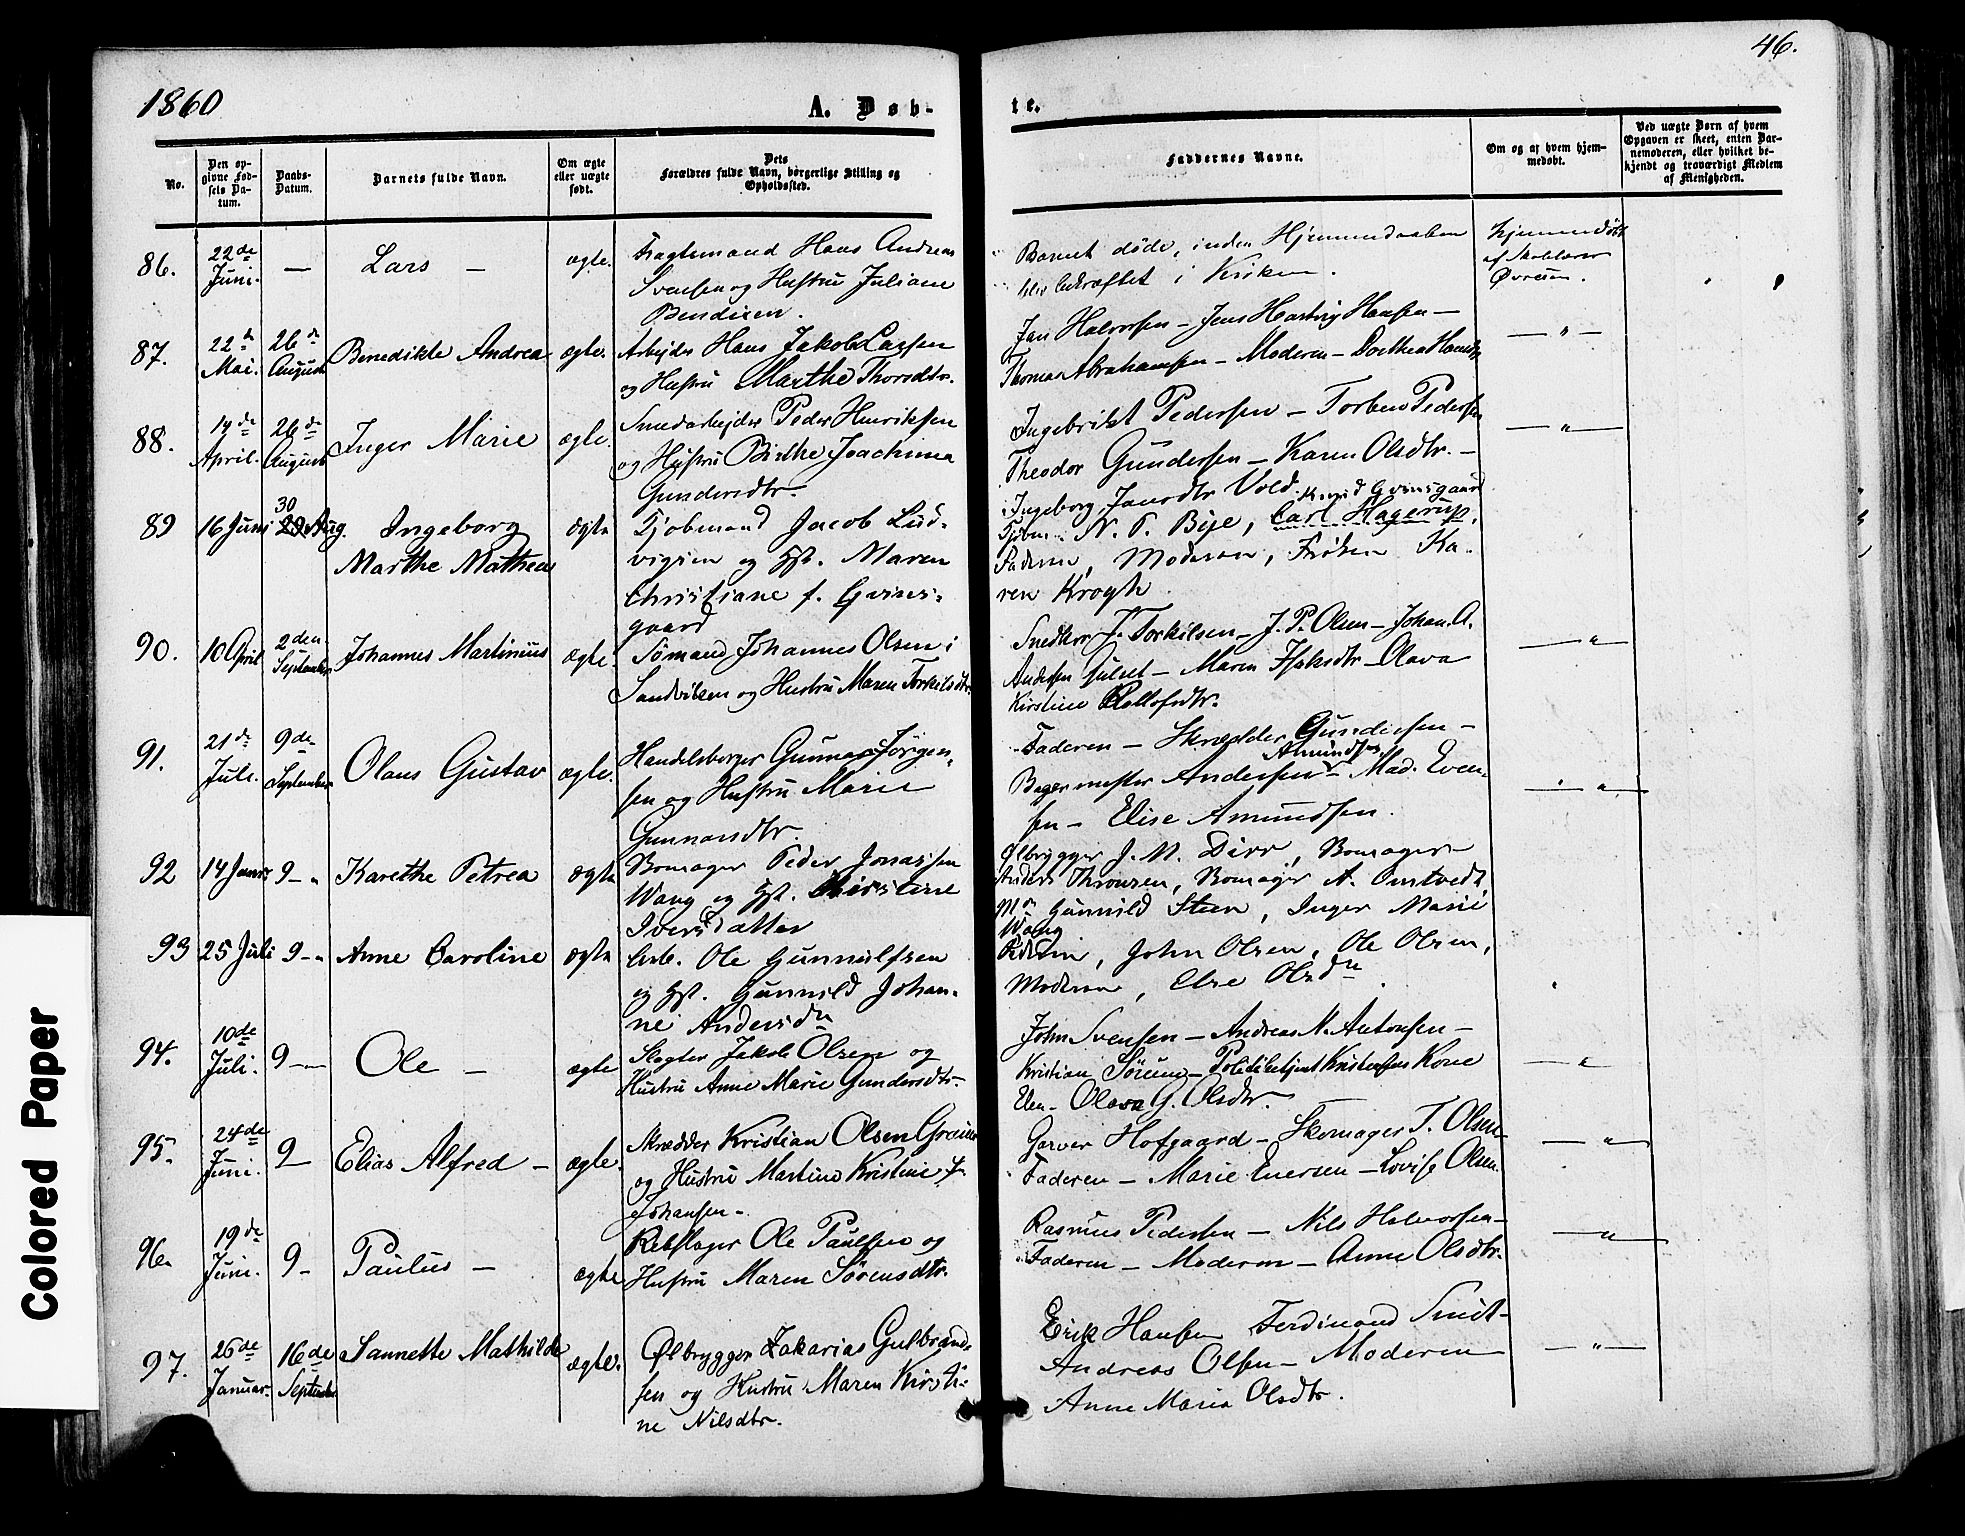 1860
A. Døb-
te.
46.
No.
Den op-
givne Fød-
sels Da-
tum.
Daabs-
Datum.
Barnets fulde Navn.
Om ægte
eller uægte
født.
Dets
Forældres fulde Navn, borgerlige Stilling og
Opholdssted.
Faddernes Navne.
Om og af hvem hjem-
medøbt.
Ved uægte Børn af hvem
Opgaven er skeet, enten Bar-
nemoderen, eller hvilket be-
kjendt og troværdigt Medlem
af Menigheden.
86.
22de
Juni.
—
Lars —
ægte.
Fragtemand Hans Andreas
Svensen og Hustru Juliane
Bendixen.
Barnet døde, inden Hjemmedaaben
blev bekræftet i Kirken.
hjemmedøbt
af
87.
22de
Mai.
26de
August
Benedikte Andrea
ægte.
Arbejder Hans Jakob Larsen
og Hustru Marthe Thorsdtr.
Jan Halvorsen — Jens Hartvig Hansen —
Thomas Abrahamsen — Moderen — Dorthea
— " —
88.
14de
April.
26de
August
Inger Marie
ægte.
Smedarbejder Peder Henriksen
og Hustru Birthe Joachima
Gundersdtr.
Ingebrikt Pedersen — Torben Pedersen
Theodor Gundersen — Karen Olsdtr. —
Ingeborg Jansdtr Vold.
— " —
89
16 Juni
30
29 Aug.
Ingeborg
Marthe Mathea
ægte
Kjøbmand Jacob Lud-
vigsen og Hst. Maren
Christiane f. Gvins-
gaard
Knud Gvinsgaard
Kjøbm. N. P. Bye, Carl Hagerup,
Faderen, Moderen, Frøken Ka-
ren Krogh.
90.
10 April
2den
September
Johannes Martinius
ægte.
Sømand Johannes Olsen i
Sandviken og Hustru Maren Torkilsdtr.
Snedker T. Torkilsen — J. P. Olsen — Johan A.
Andersen — Maren — Olava
Kirstine
— " —
91.
21de
Juli.
9de
September
Olaus Gustav
ægte.
Handelsborger Gunnar Jørgen-
sen og Hustru Marie
Gunnarsdtr.
Faderen — Skrædder Gundersen —
Amundsen
Bagermester Andersen — Mad. Even-
sen — Elise Amundsen.
" "
92
14 Januar
9 — "
Karethe Petrea
ægte
Peder Jonassen
Wang og Hst. Kirstine
Iversdatter
Ølbrygger J. M. Dirr,
Anders Thronsen, A. Omtvedt,
Gunnild Steen, Inger Marie
Wang
93
25 Juli
9 — "
Anne Caroline
ægte
Arb. Ole Gunnulfsen
og Hst. Gunnild Johan-
ne Andersdtr
Faderen, John Olsen, Ole Olsen,
Moderen, Else Olsdtr.
94.
10de
Juli.
9 —
Ole —
ægte
Slagter Jakob Olsen og
Hustru Anne Marie Gundersdtr.
John Svensen — Andreas N. Antonsen —
Kristian Sørum — Politibetjent Kristensens Kone
Elen — Olava G. Olsdtr.
— " —
95.
24de
Juni.
9 —
Elias Alfred —
ægte.
Skrædder Kristian Olsen
og Hustru Martine Kristine f.
Johansen.
Garver Hofgaard — Skomager T. Olsen —
Faderen — Marie Iversen — Lovise Olsen.
— " —
96.
19de
Juni.
9 —
Paulus —
ægte
Rebslager Ole Paulsen og
Hustru Maren Sørensdtr.
Rasmus Pedersen — Nils Halvorsen —
Faderen — Moderen — Anne Olsdtr.
— " —
97.
26de
Januar.
16de
September
Jannette Mathilde
ægte.
Ølbrygger Zakarias Gulbrand-
sen og Hustru Maren Kirsti-
ne Nilsdtr.
Erik Hansen Ferdinand Smit —
Andreas Olsen — Moderen
Anne Maria Olsdtr.
— " —
Colored Paper